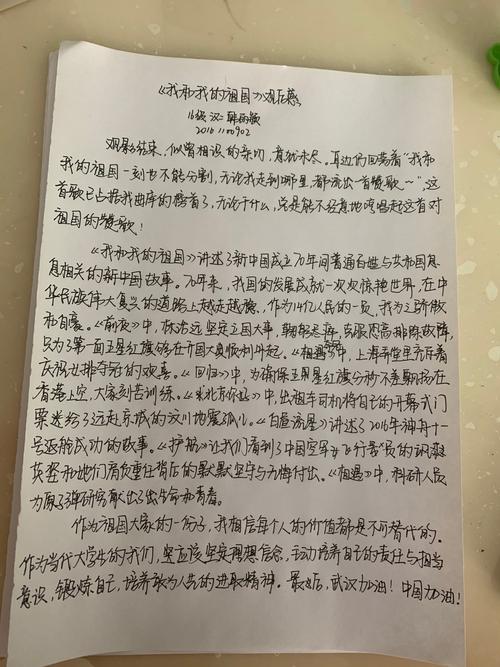 《我和我的祖国》观后感
16级 汉二 韩
20161100902
观影结束，似曾相识的亲切，意犹未尽。耳边仍回荡着“我和
我的祖国一刻也不能分割，无论我走到哪里，都流出一首赞歌～”，这
首歌已占据我曲库的榜首了，无论干什么，总是能不经意地哼唱起这首对
祖国的赞歌！
《我和我的祖国》讲述了新中国成立70年间普通百姓与共和国息
息相关的新中国故事。70年来，我国的发展成就一次次惊艳世界，在中
华民族伟大复兴的道路上越走越稳，作为14亿人民的一员，我为之骄傲
和自豪。《前夜》中，林治远坚定立国大事，克服恐高排除故障，
只为了第一面五星红旗够在开国大典顺利升起。《夺冠》中，上海弄堂里充斥着
庆祝女排夺冠的欢喜。《回归》中，为确保五星红旗分秒不差飘扬在
香港上空，大家刻苦训练。《北京你好》中，出租车司机将自己的开幕式门
票送给了远赴京城的汶川地震孤儿。《白昼流星》讲述了2016年神舟十一
号返航成功的故事。《护航》让我们看到了中国空军女飞行员的飒爽
英姿和她们肩负重任背后的默默坚守与无悔付出。《相遇》中，科研人员
为原子弹研究献出了生命和青春。
作为祖国大家的一份子，我相信每个人的价值都是不可替代的。
作为当代大学生的我们，更应该坚定理想信念，主动培养自己的责任与担当
意识，锻炼自己，培养敢为人先的进取精神。最后，武汉加油！中国加油！